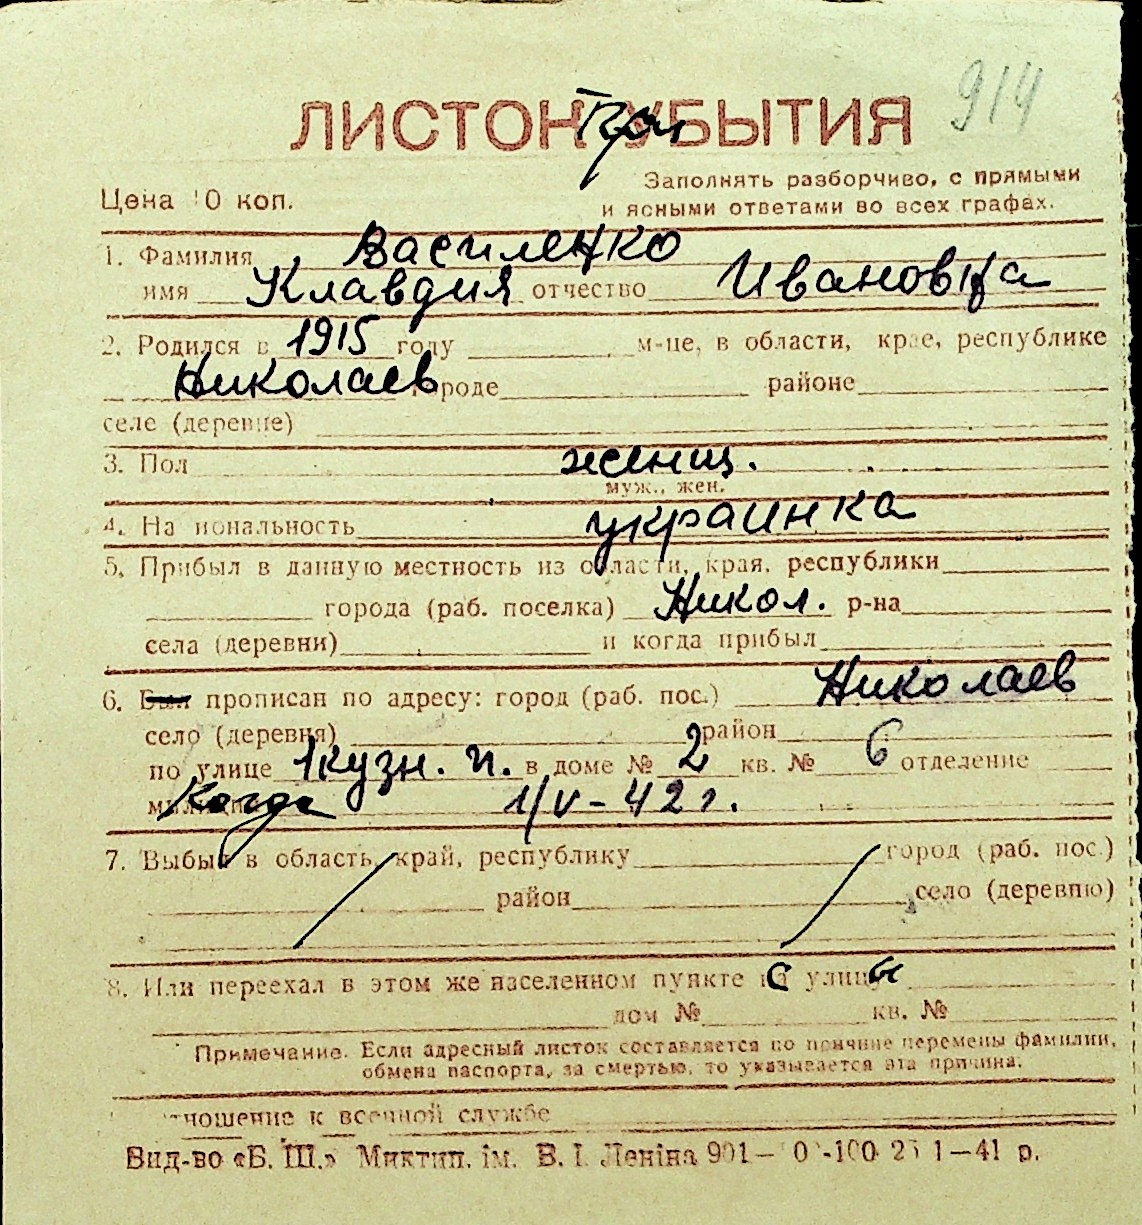 914
ЛИСТОК При УБЫТИЯ
Заполнять разборчиво, с прямыми
Цена 10 коп.
и ясными ответами во всех графах.
1. Фамилия Василенко
имя Клавдия отчество Ивановна
2. Родился в 1915 году м-це, в области, крае, республике
Николаев городе районе
селе (деревне)
3. Пол женщ.
муж., жен.
4. Национальность украинка
5. Прибыл в данную местность из области, края, республики
города (раб. поселка) Никол. р-на
села (деревни) и когда прибыл
6. Был прописан по адресу: город (раб. пос.) Николаев
село (деревня) район
по улице 1 кузн. п. в доме № 2 кв. № 6 отделение
милиции Когда 1/V-42 г.
7. Выбыл в область, край, республику город (раб. пос.)
район село (деревню)
8. Или переехал в этом же населенном пункте с улицы
дом № кв. №
Примечание. Если адресный листок составляется по причине перемены фамилии,
обмена паспорта, за смертью, то указывается эта причина.
Отношение к военной службе
Вид-во «Б. Ш.» Миктип. ім. В. І. Леніна 1—41 р.